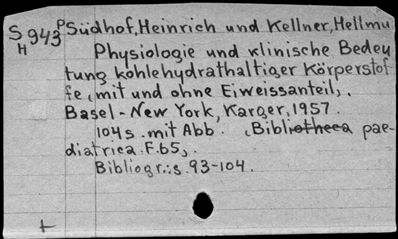 S 943 P Südhof, Heinrich und Kellner, Hellmu
H Physiologie und klinische Bedeu
tung kohlehydrathaltiger Körperstof
fe (mit und ohne Eiweissanteil).
Basel - New York, Karger, 1957.
104 s. mit Abb. (Bibliotheca pae-
diatrica. F.65).
Bibliogr.: s. 93-104.